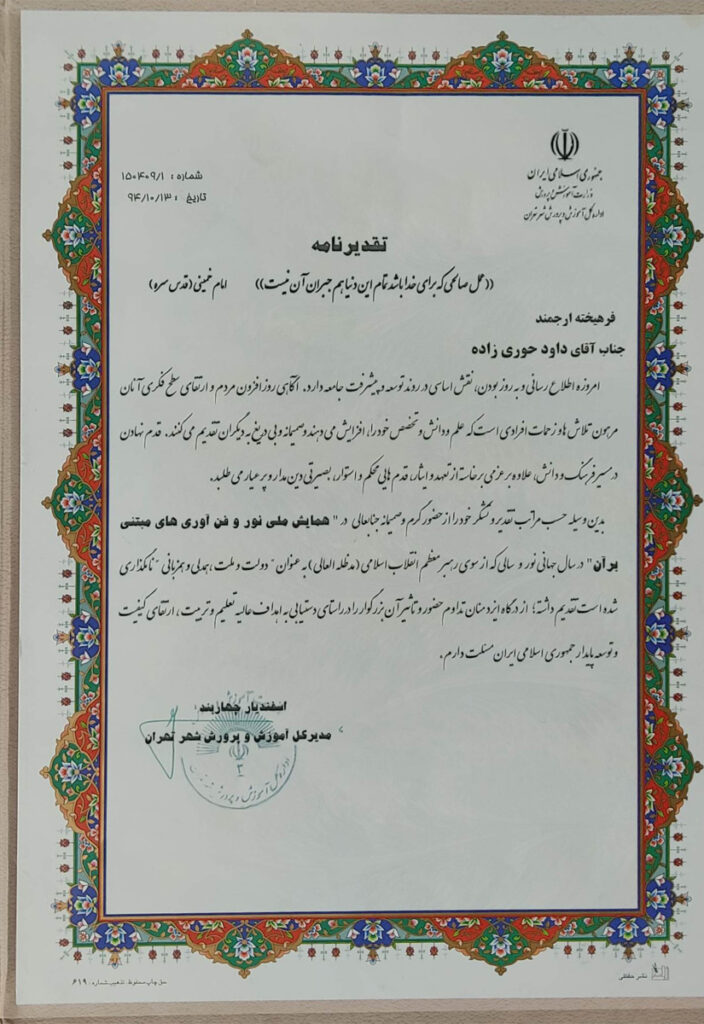 جمهوری اسلامی ایران
وزارت آموزش و پرورش
اداره کل آموزش و پرورش شهر تهران
شماره : ۱۵۰۴۰۹/۱
تاریخ : ۹۴/۱۰/۱۳
تقدیرنامه
((عمل صالحی که برای خدا باشد تمام این دنیا هم جبران آن نیست)) امام خمینی (قدس سره)
فرهیخته ارجمند
جناب آقای داود حوری زاده
امروزه اطلاع رسانی و به روز بودن، نقش اساسی در روند توسعه و پیشرفت جامعه دارد. آگاهی روز افزون مردم و ارتقای سطح فکری آنان
مرهون تلاش ها و زحمات افرادی است که علم و دانش و تخصص خود را، افزایش می دهند و صمیمانه و بی دریغ به دیگران تقدیم می کنند. قدم نهادن
در مسیر فرهنگ و دانش، علاوه بر عزمی برخاسته از تعهد و ایثار، قدم هایی محکم و استوار، بصیرتی دین مدار و پر عیار می طلبد.
بدین وسیله حسب مراتب تقدیر و تشکر خود را از حضور گرم و صمیمانه جنابعالی در " همایش ملی نور و فن آوری های مبتنی
بر آن" در سال جهانی نور و سالی که از سوی رهبر معظم انقلاب اسلامی (مدظله العالی) به عنوان " دولت و ملت ، همدلی و همزبانی " نامگذاری
شده است تقدیم داشته؛ از درگاه ایزد منان تداوم حضور و تاثیر آن بزرگوار را در راستای دستیابی به اهداف عالیه تعلیم و تربیت ، ارتقای کیفیت
و توسعه پایدار جمهوری اسلامی ایران مسئلت دارم .
اسفندیار چهاربند
مدیرکل آموزش و پرورش شهر تهران
۳
اداره کل آموزش و پرورش
نشر حفظی
حق چاپ محفوظ، تذهیب شماره : ۶۱۹